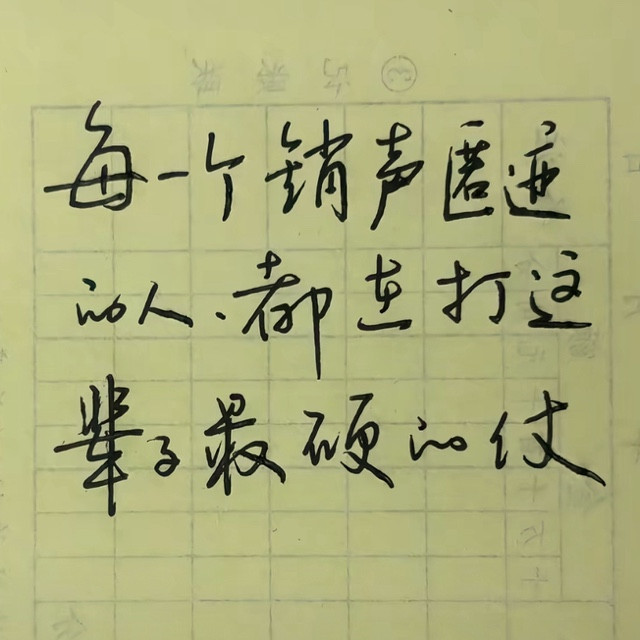 每一个销声匿迹
的人、都在打这
辈子最硬的仗